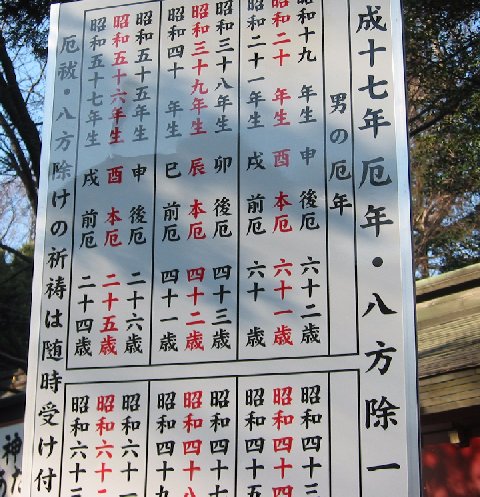 成十七年厄年・八方除一
男の厄年
昭和十九年生申後厄六十二歳
昭和二十年生酉本厄六十一歳
昭和二十一年生戌前厄六十歳
昭和三十八年生卯後厄四十三歳
昭和三十九年生辰本厄四十二歳
昭和四十年生巳前厄四十一歳
昭和五十五年生申後厄二十六歳
昭和五十六年生酉本厄二十五歳
昭和五十七年生戌前厄二十四歳
昭和四十三
昭和四十四
昭和四十五
昭和四十七
昭和四十八
昭和四十九
昭和六十一
昭和六十二
昭和六十三
厄祓・八方除けの祈祷は随時受け付
神